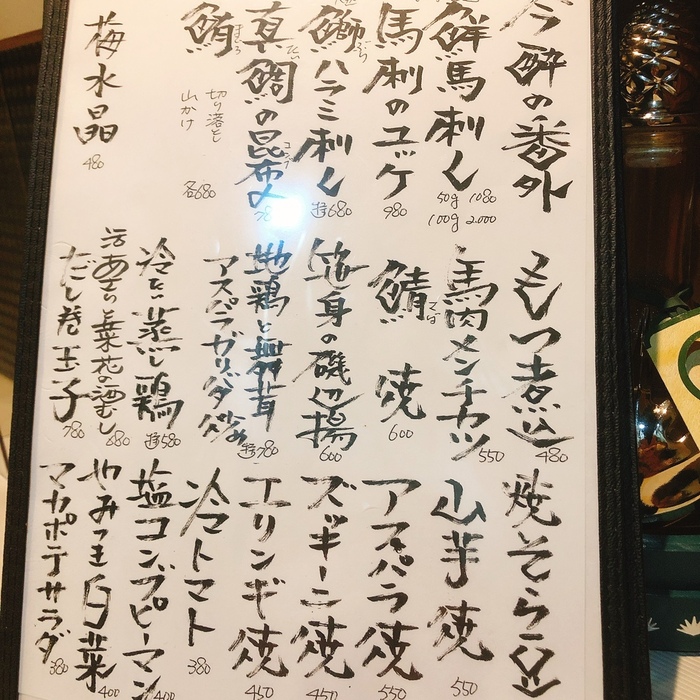 今酔の番外
鮮馬刺し
50g 1080
100g 2.000
馬刺のユッケ
980
鰤ハラミ刺し
ぶり
680
真鯛の昆布〆
たい
コンブ
鮪
まぐろ
切り落とし
山かけ
各680
梅水晶
480
もつ煮込
480
馬肉メンチカツ
550
鯖焼
さば
600
笹身の磯辺揚
600
地鶏と舞茸
アスパラガリバタ炒め
780
冷たい蒸し鶏
580
活あさりと菜花の酒むし
680
だし巻玉子
780
焼そら豆
山芋焼
550
アスパラ焼
550
ズッキーニ焼
450
エリンギ焼
450
冷トマト
380
塩コンブピーマン
400
やみつき白菜
400
マカポテサラダ
380